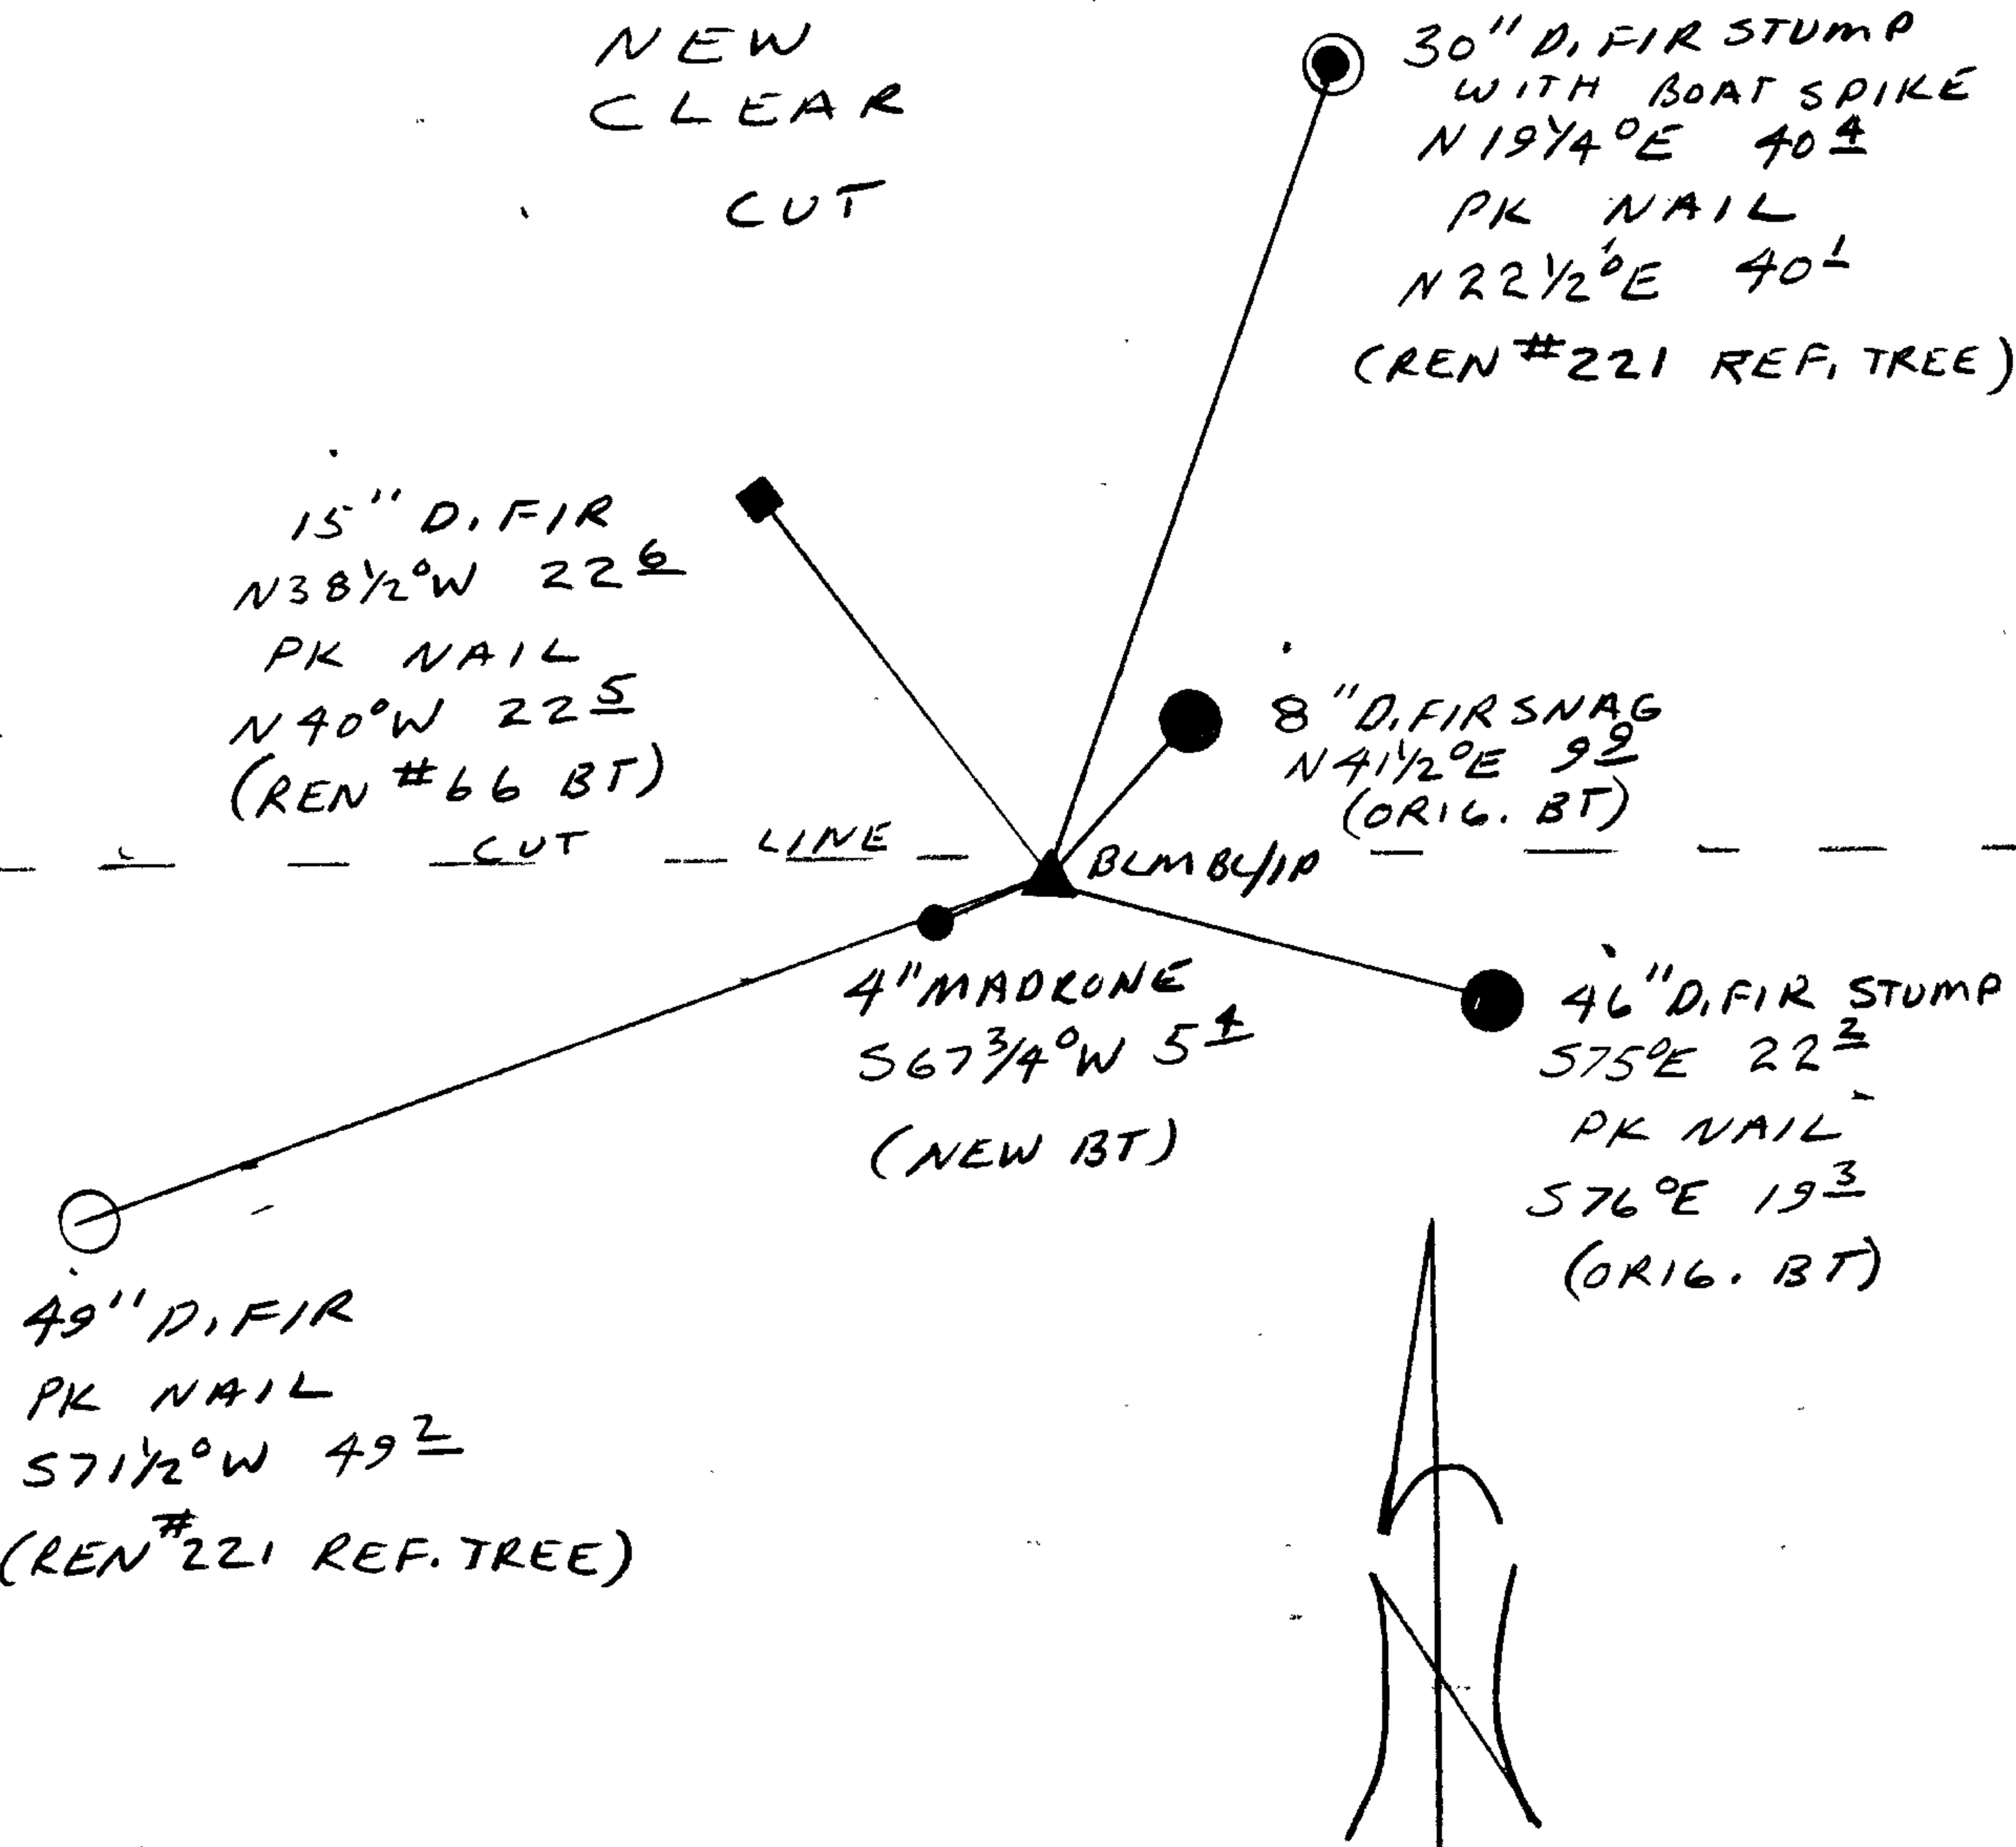 NEW
CLEAR
CUT
30" D. FIR STUMP
WITH BOAT SPIKE
N 19 1/4° E 40 4
PK NAIL
N 22 1/2° E 40 1
(REN #221 REF. TREE)
15" D. FIR
N38 1/2° W 22 6
PK NAIL
N40° W 22 5
(REN #66 BT)
8" D. FIR SNAG
N41 1/2° E 9 9
(ORIG. BT)
CUT LINE
BLM BC/IP
4" MADRONE
S67 3/4° W 5 4
(NEW BT)
46" D. FIR STUMP
S75° E 22 2
PK NAIL
S76° E 19 3
(ORIG. BT)
49" D. FIR
PK NAIL
S71 1/2° W 49 2
(REN #221 REF. TREE)
N